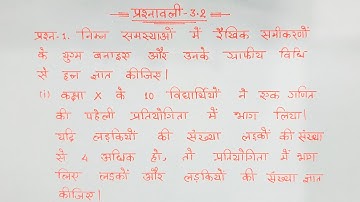 प्रश्नावली-3.2
प्रश्न-1. निम्न समस्याओं में रैखिक समीकरणों
के युग्म बनाइए और उनके ग्राफीय विधि
से हल ज्ञात कीजिए।
(i) कक्षा X के 10 विद्यार्थियों ने एक गणित
की पहेली प्रतियोगिता में भाग लिया।
यदि लड़कियों की संख्या लड़कों की संख्या
से 4 अधिक हो, तो प्रतियोगिता में भाग
लिए लड़कों और लड़कियों की संख्या ज्ञात
कीजिए।